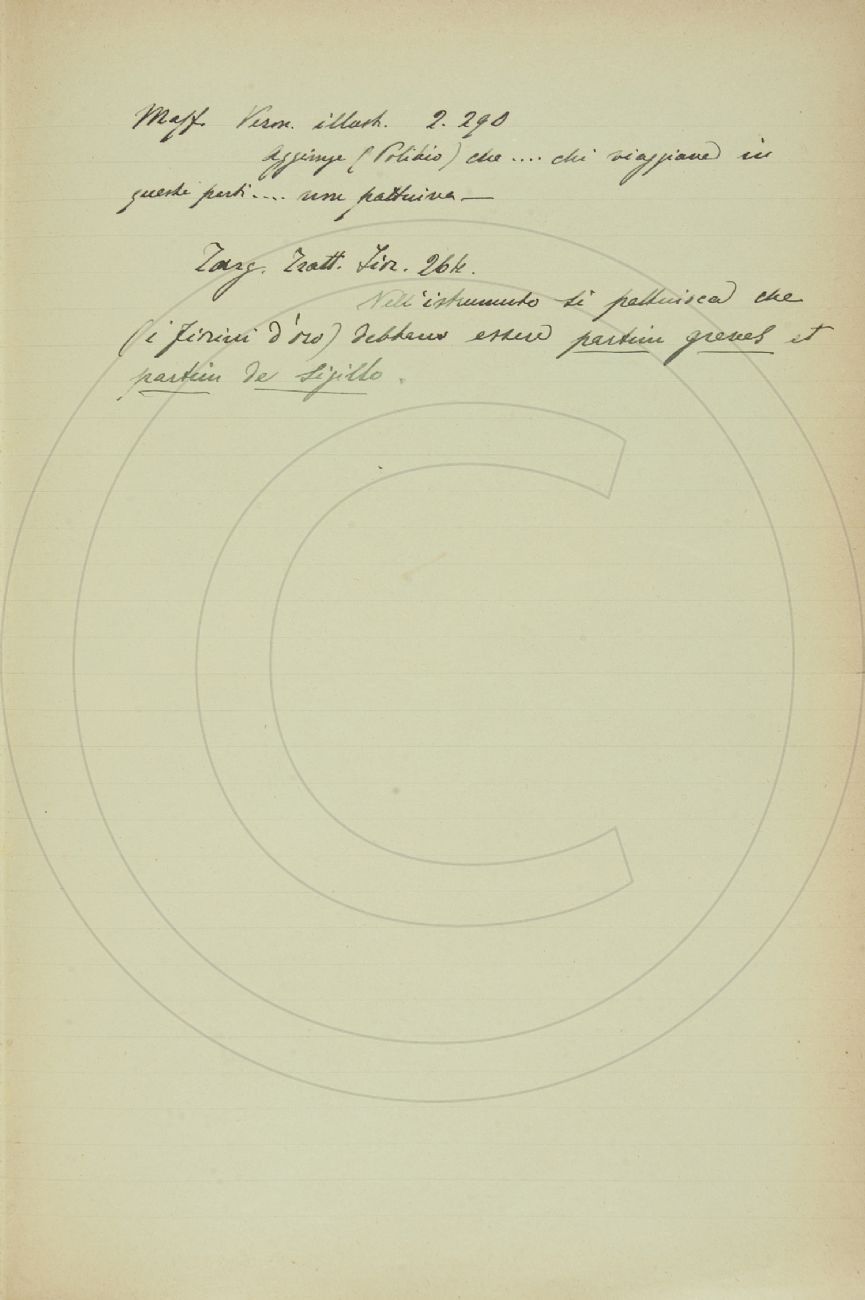 Maff. Veron. illust. 2. 290
Aggiunge (Polibio) che .... chi viaggiava in
queste parti .... non pattuiva —
Targ. Tratt. Fior. 264.
Nell'istrumento si pattuisca che
(i fiorini d'oro) debbano essere partim graves et
partim de sigillo.